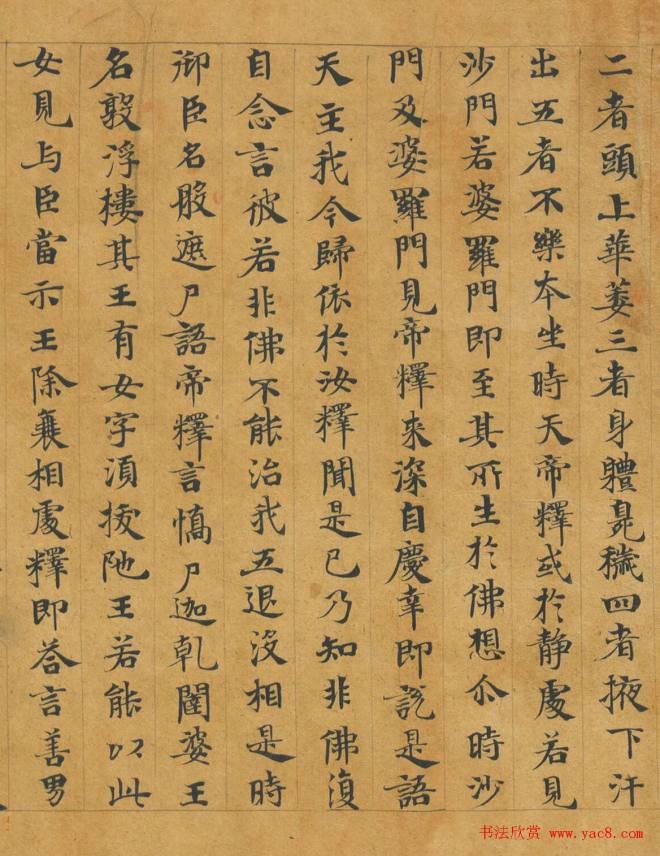 二者頭上華萎三者身體臭穢四者掖下汗
出五者不樂本坐時天帝釋或於静處若見
沙門若婆羅門即至其所生於佛想尒時沙
門及婆羅門見帝釋来深自慶幸即說是語
天主我今歸依於汝釋聞是已乃知非佛復
自念言彼若非佛不能治我五退没相是時
御臣名般遮尸語帝釋言憍尸迦乹闥婆王
名敦浮樓其王有女字湏拔陁王若能以此
女見与臣當示王除襄相處釋即荅言善男
书法欣赏 www.yac8.com